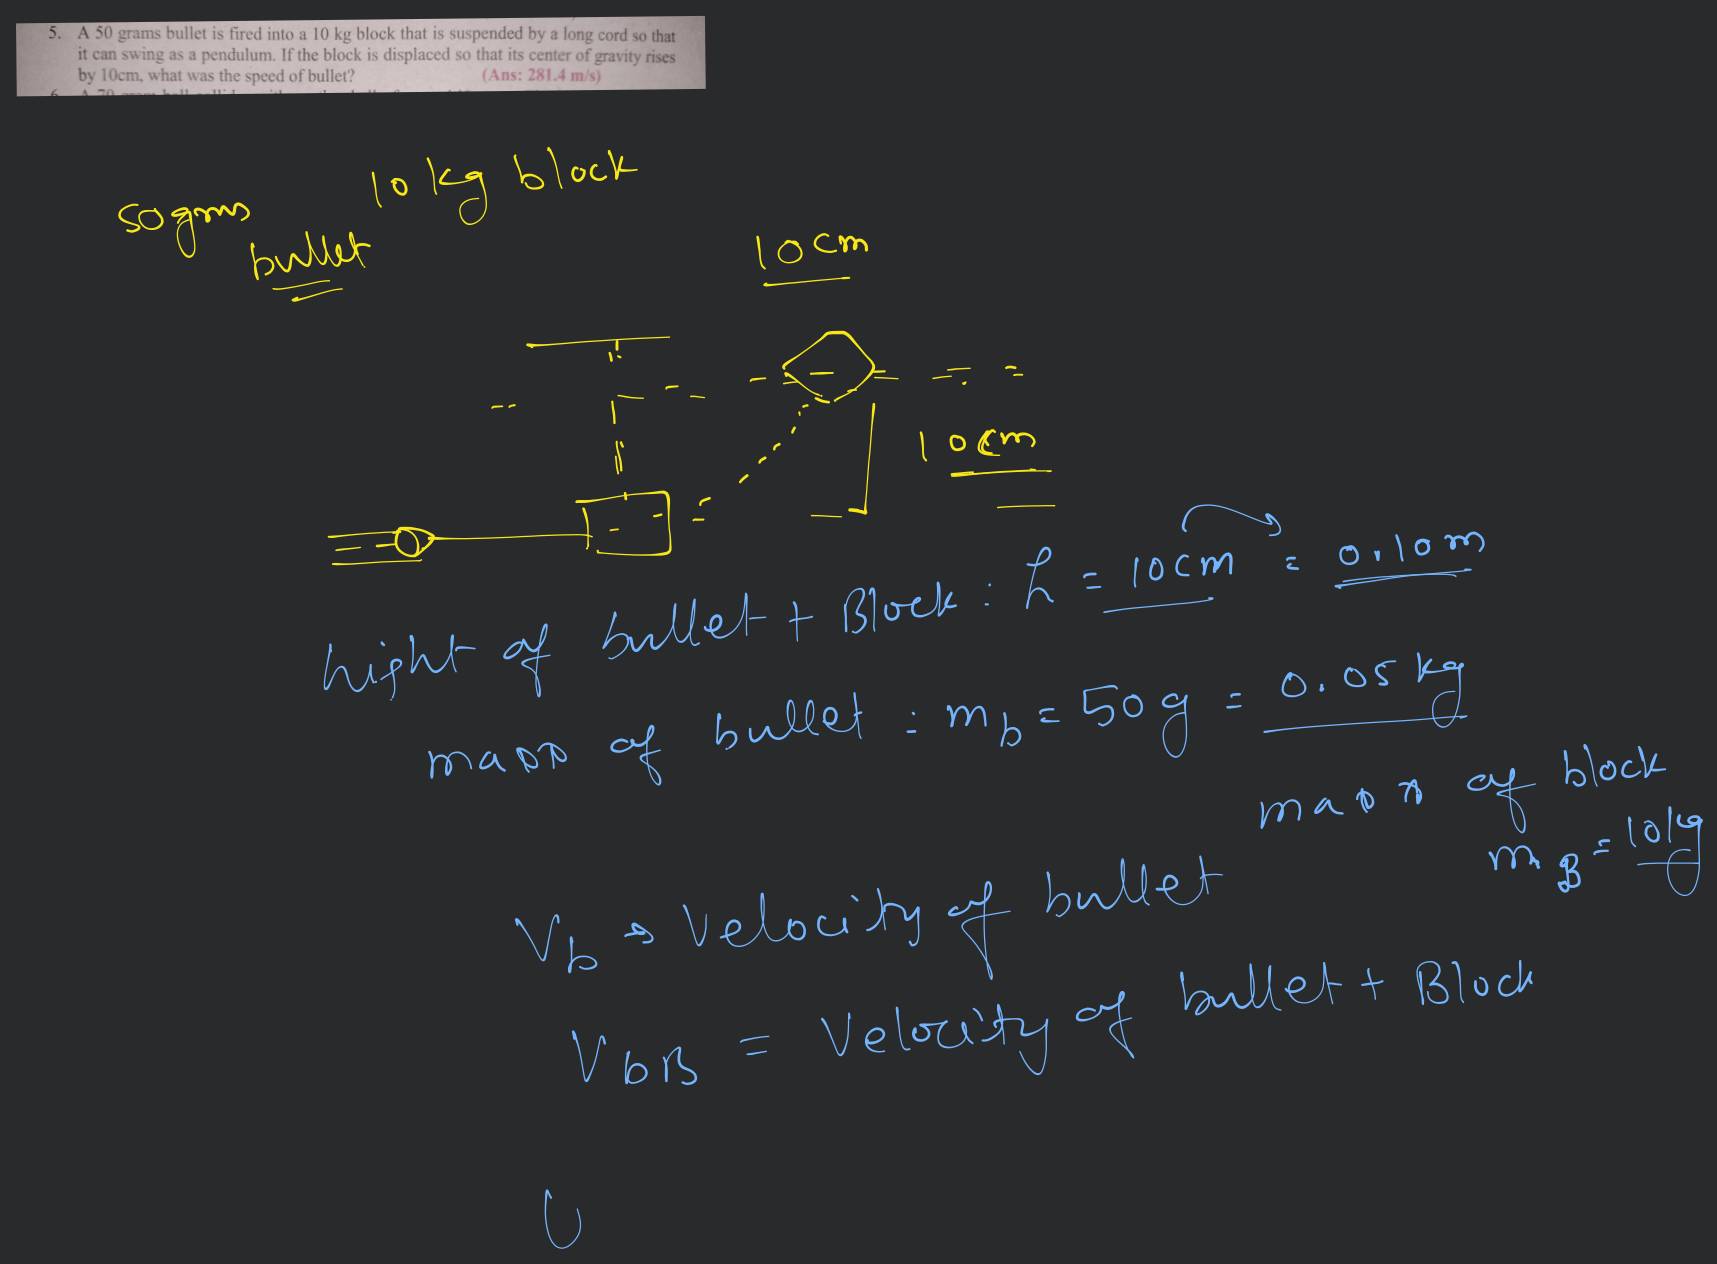 5. A 50 grams bullet is fired into a 10 kg block that is suspended by a long cord so that
it can swing as a pendulum. If the block is displaced so that its center of gravity rises
by 10cm, what was the speed of bullet? (Ans: 281.4 m/s)
50 gms
bullet
10 kg block
10 cm
10 cm
hight of bullet + Block : h = 10 cm = 0.10 m
mass of bullet : mb = 50 g = 0.05 kg
mass of block
mB = 10 kg
Vb → Velocity of bullet
VbB = Velocity of bullet + Block